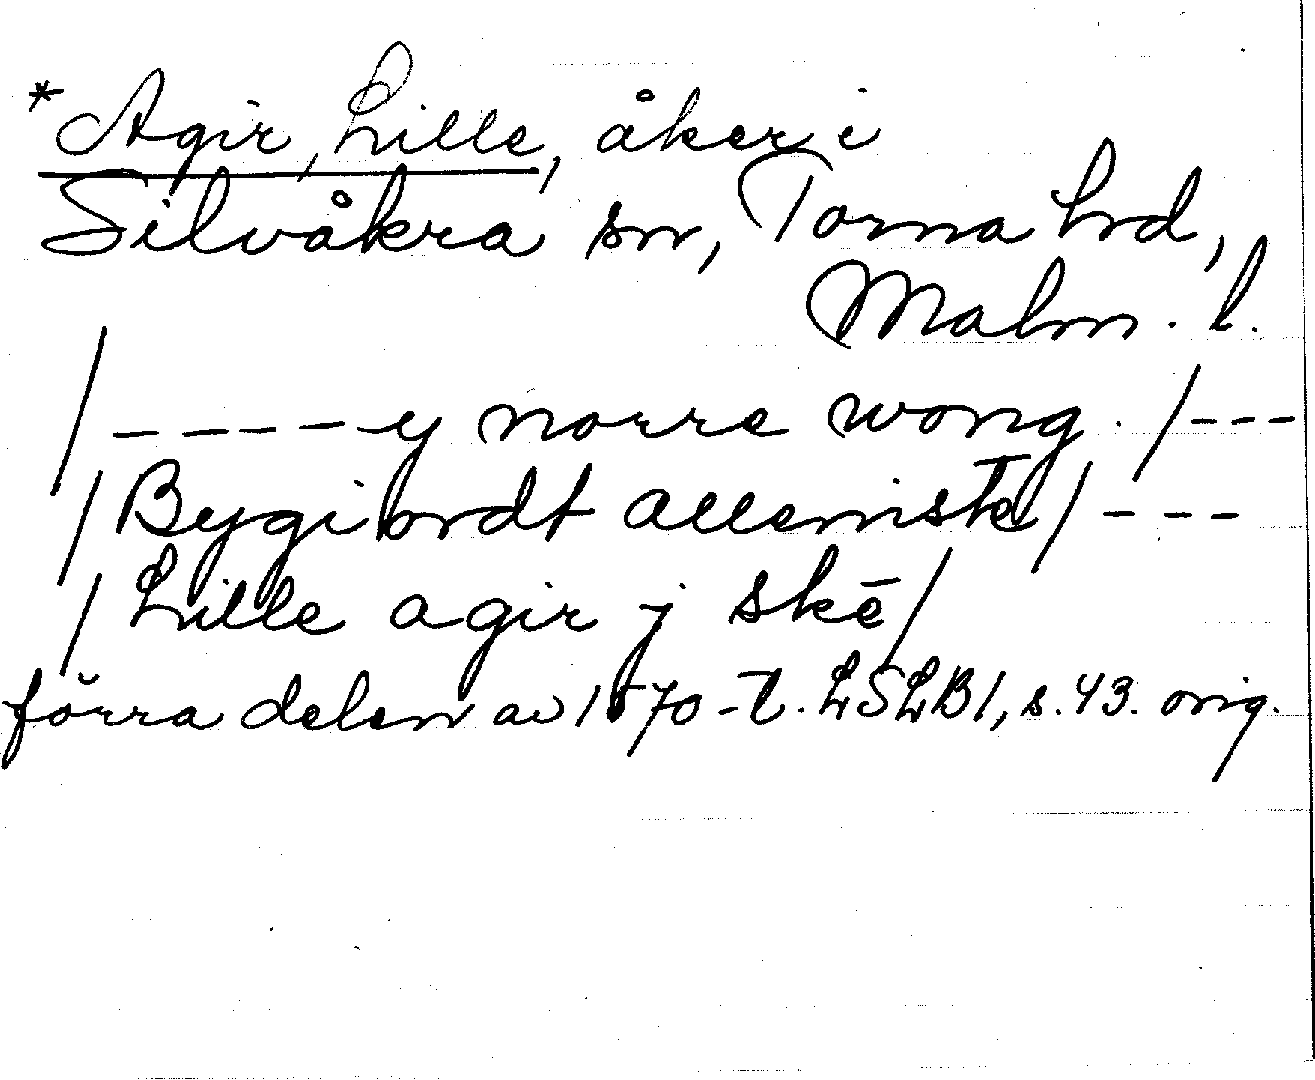 *Agir, Lille, åker i
Silvåkra sn, Torna hrd,
Malm. l.
/-----y norre wong. /---
/Bygibrdt allemste/---
/Lille agir j skē/
förra delen av 1570-t. LSLB1, s. 43. orig.